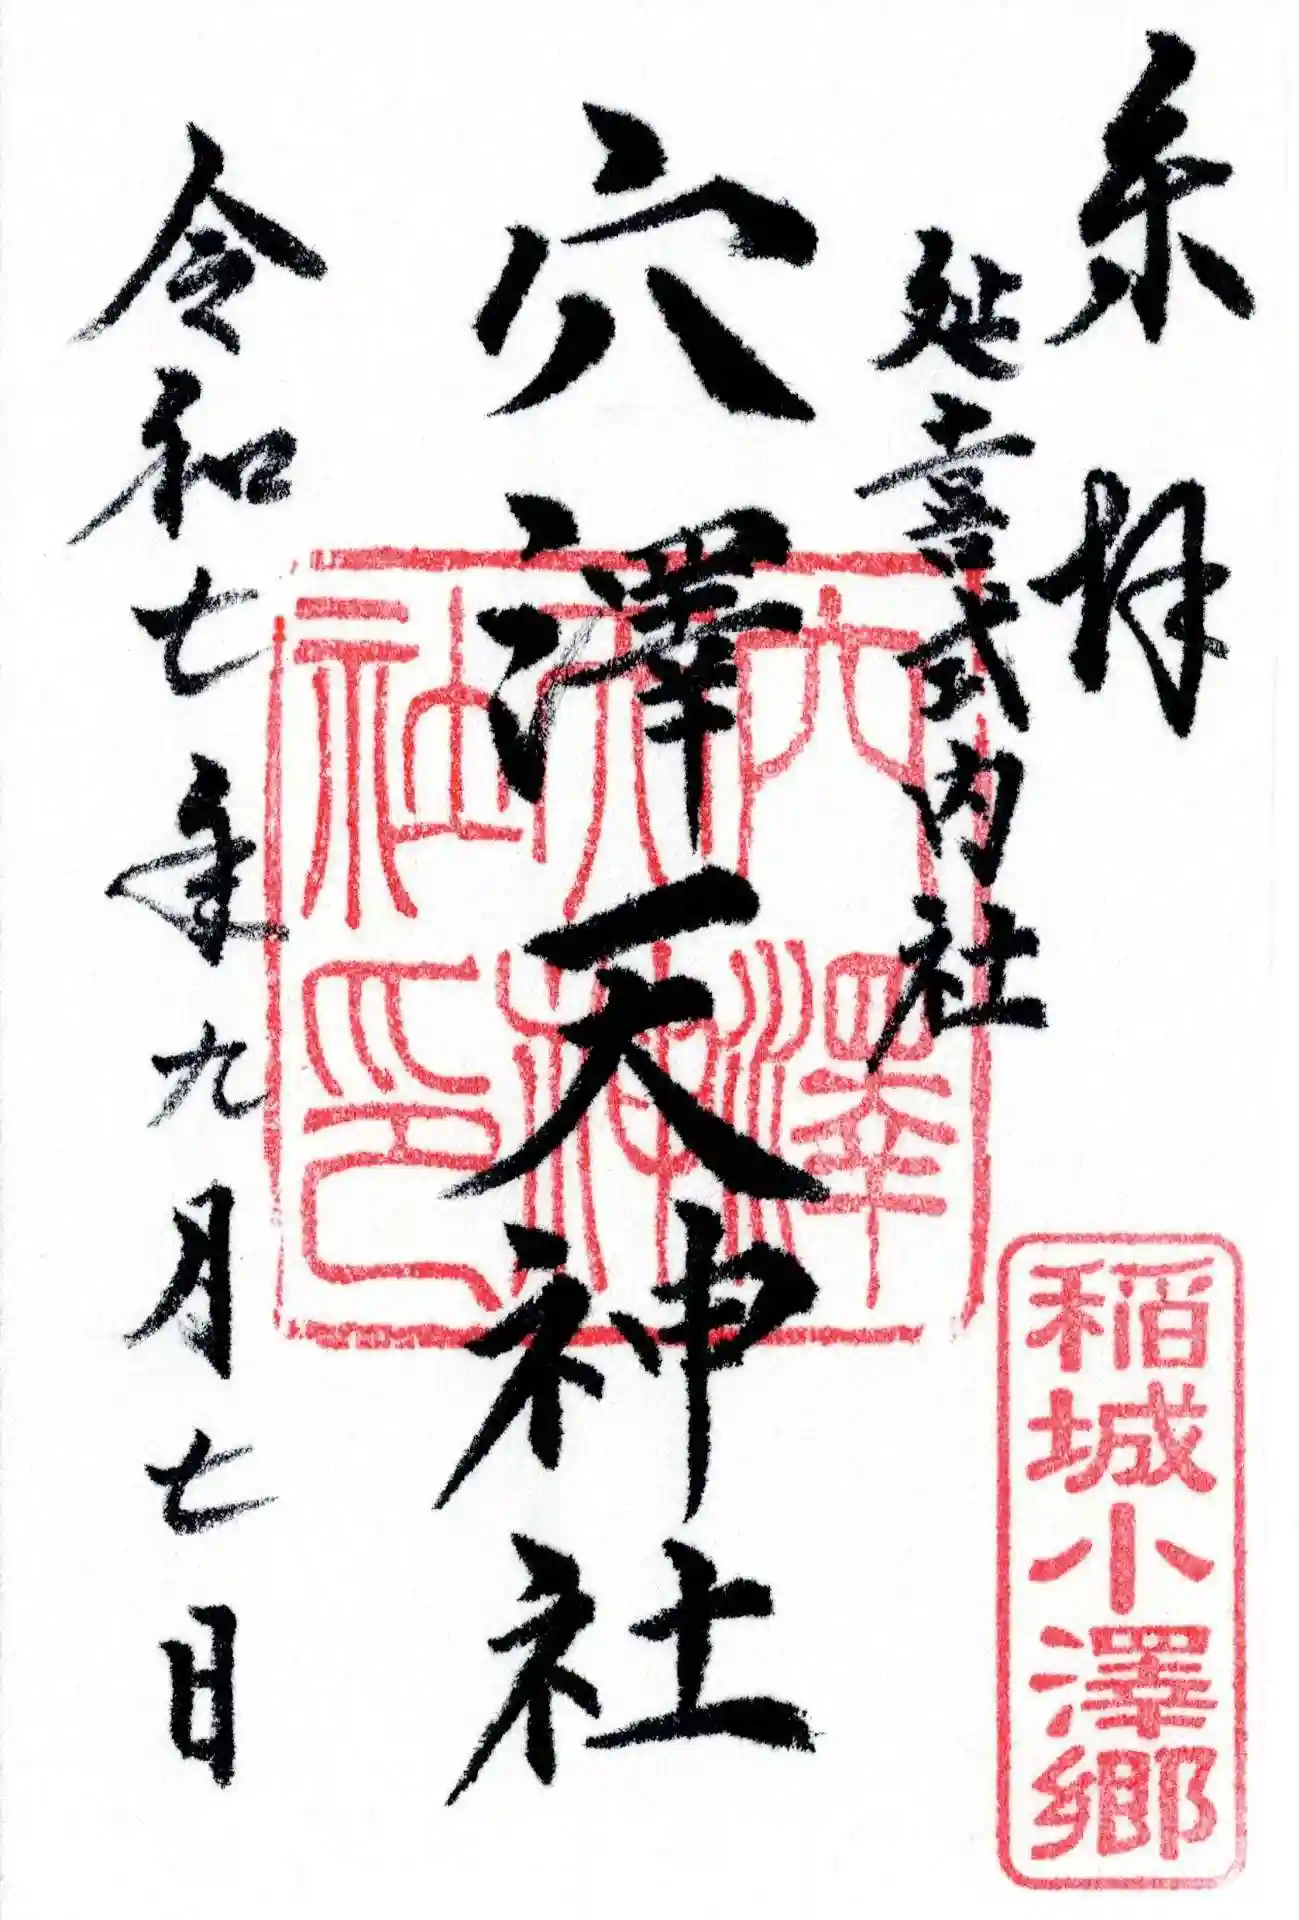 奉拝
延喜式内社
穴澤天神社
令和七年九月七日
穴澤
天神
社印
稲城小澤郷